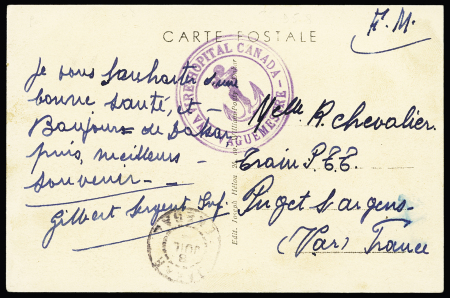 F. M.
CARTE POSTALE
HOPITAL CANADA
VAGUEMESTRE
Je vous souhaiter d'une
bonne santé, et -
Bonjour - de Dakar
puis, meilleurs -
souvenir -
Gilbert Sergent Inf.
Melle R. Chevalier
Train P.E.T.
Puget s Argens
(Var) France
Edit. Joseph Hélou